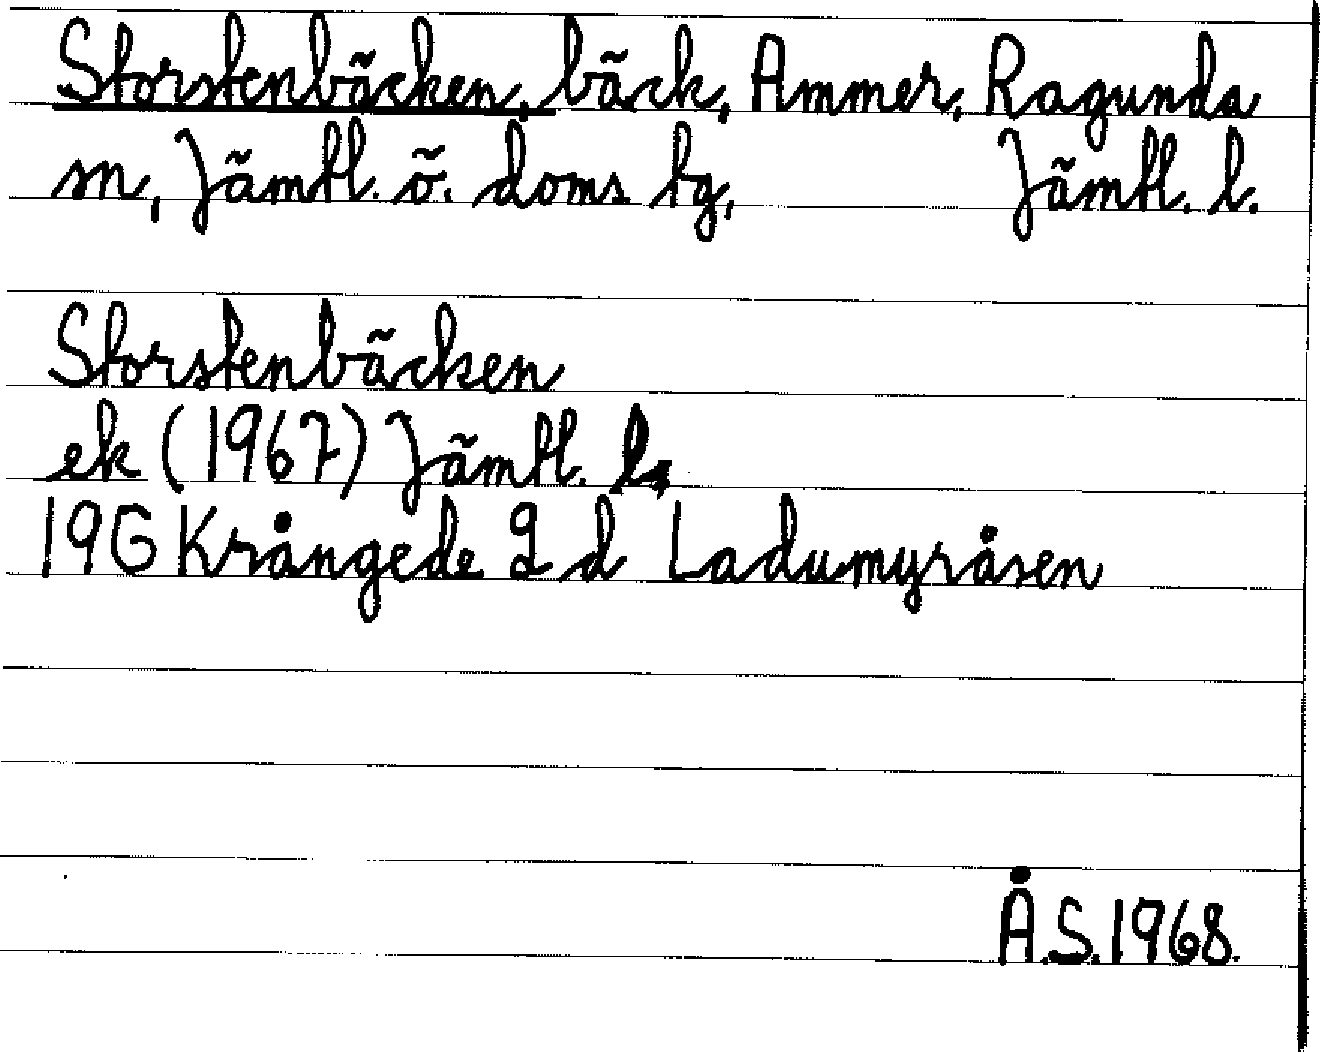 Storstenbäcken, bäck, Ammer, Ragunda
sn, Jämtl. ö. doms tg, Jämtl. l.
Storstenbäcken
ek (1967) Jämtl. l.
19G Krångede 2 d Ladumyråsen
Å.S. 1968.